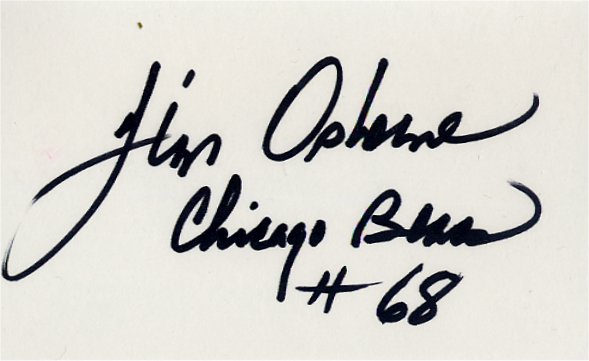 Jim Osborne
Chicago Bears
# 68